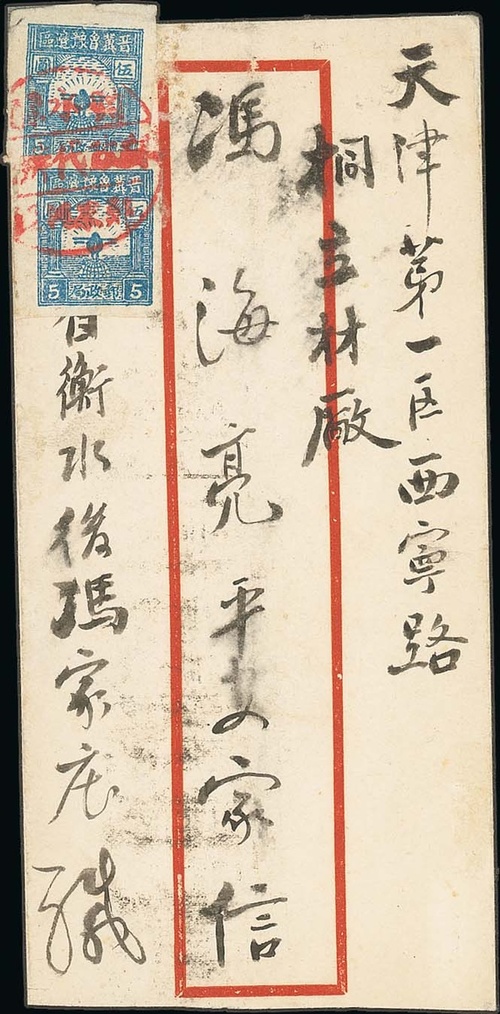 天津第一区西寧路
桐立材廠
馮海亮平安家信
自衡水後馮家庄緘
晉冀魯豫邊區
伍圓
5
晉冀魯豫邊區
5 郵政局 5